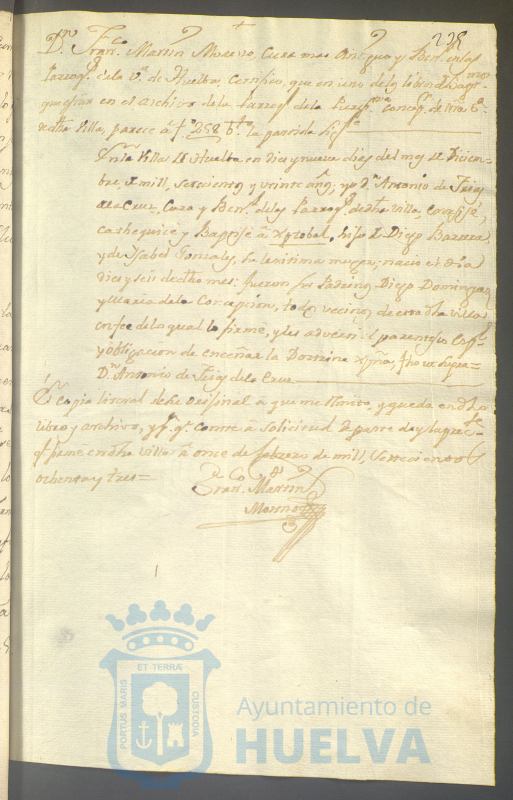 228
Dn. Franco. Martin Moreno, Cura mas Antiguo y Benfdo. en las
Parroqs. de la Va. de Huelva, Certifico, que en uno de los libros de Baptmos.
que estan en el archivo de la Parroql. de la Puriss. Concepn. de Ntra. Sa.
de dha Villa, parece a fo. 258 bto. la partida sigte.
En la Villa de Huelva en diez y nueve dias del mes de Diciem-
bre, de mill, setecientos y veinte años; yo Dn. Antonio de
de la Cruz, Cura y Benfdo. de las Parroqs. de dha villa exorcisé,
cathequicé y Baptisé a Xptobal, hijo de Diego Barrera,
y de Isabel Gonzales, su lexitima muger; nacio el dia
diez y seis de dho mes: fueron sus Padrinos Diego Dominguez
y Maria de la Concepcion, todos vecinos de esta dha villa
en fee de lo qual lo firmé, y les adverti el parentesco
y obligacion de enceñar la Doctrina Xptna. fho ut supra=
Dn. Antonio de de la Cruz
Es copia literal de su original a que me remito, y queda en dho
libro y archivo, y pa. qe. conste a solicitud de parte doy la presente
qe. firmé en dha villa a once de febrero de mill, setecientos
ochenta y tres=
Dn. Franco. Martin
Moreno
ET·TERRÆ
PORTUS MARIS
CUSTODIA
Ayuntamiento de
HUELVA